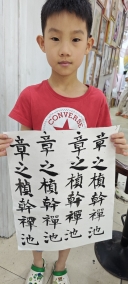 CONVERSE
章之楨幹禪池
章之楨幹禪池
章之楨幹禪池
章之楨幹禪池